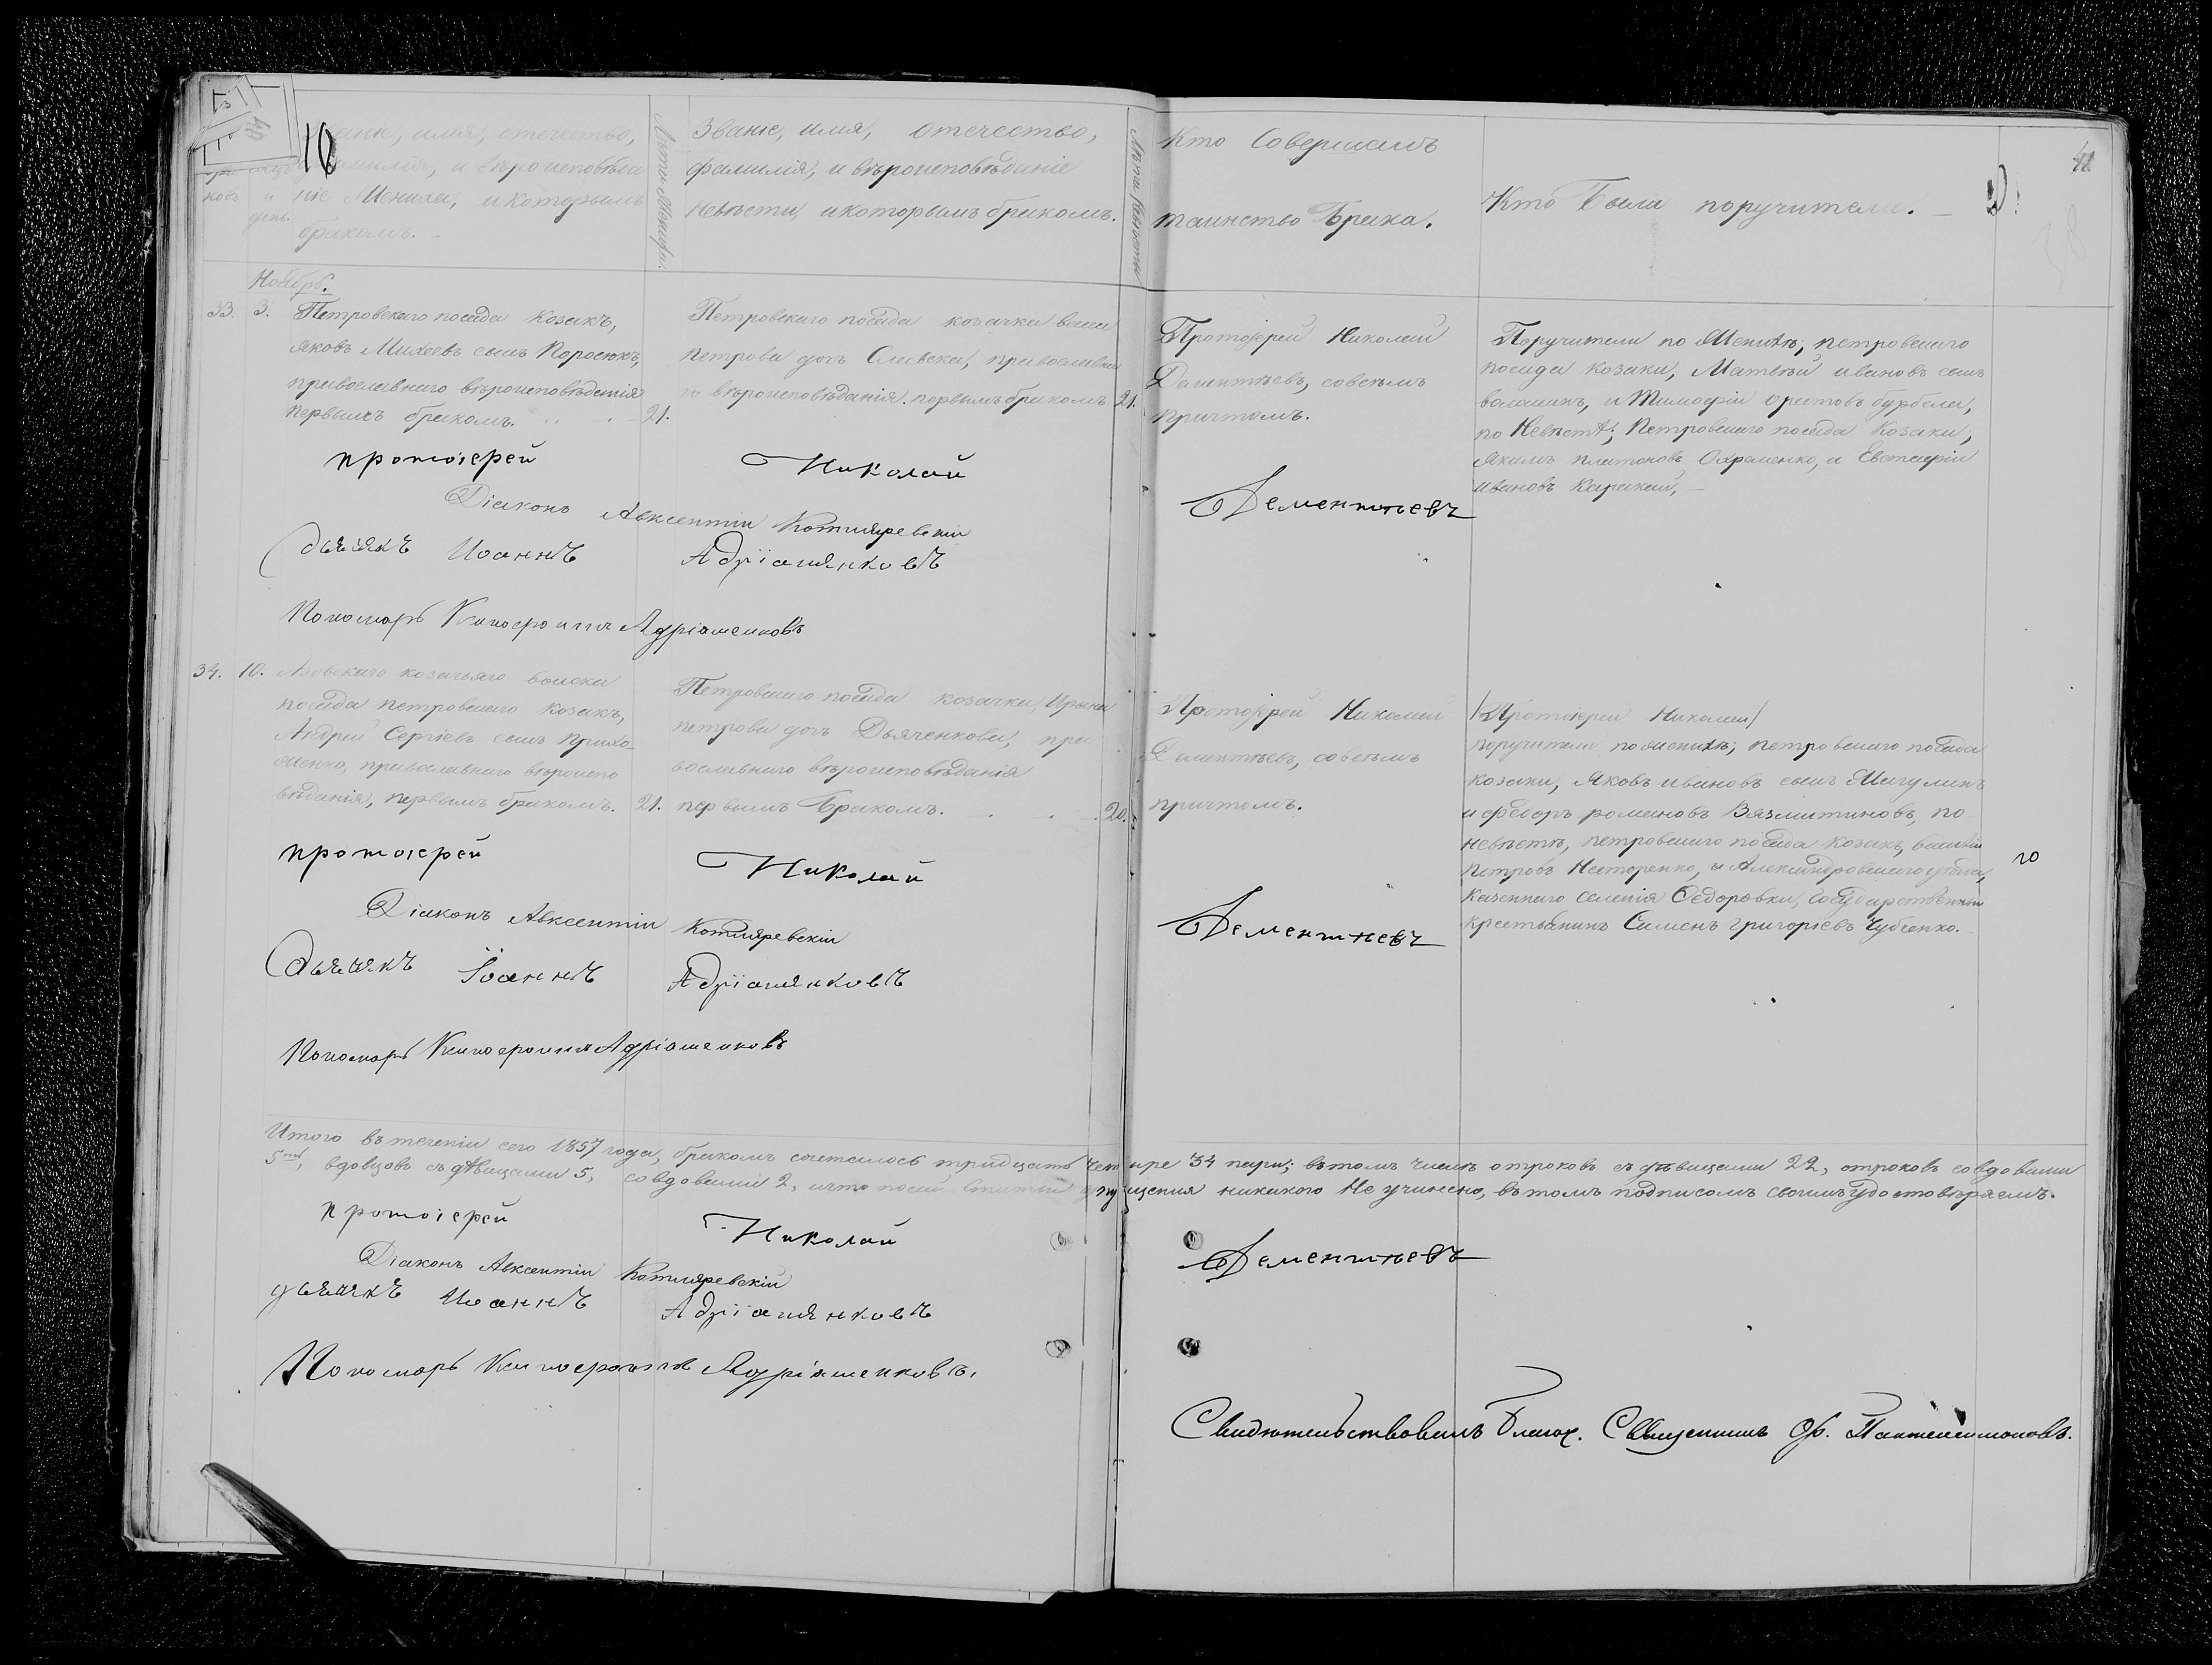 10
41
званіе, имя, отечество,
фамилія, и вѣроисповѣда
ніе Жениха, и которымъ
бракомъ.
ковъ и
день.
Лѣта Жениха.
Званіе, имя, отечество,
фамилія, и вѣроисповѣданіе
Невѣсти, и которымъ бракомъ.
Лѣта Невѣсти
Кто Совершалъ
таинство Брака.
Кто Были поручители.
Ноябрь.
33. 3. Петровскаго посада Козакъ,
яковъ Михеевъ сынъ Поросюкъ,
православнаго вѣроисповѣданія
первымъ бракомъ. 21.
Петровскаго посада козачка васса
петрова дочь Слевска, православна
го вѣроисповѣданія. первымъ бракомъ. 21.
Протоіерей Николай
Дементѣевъ, совсѣмъ
причтомъ.
Поручители по Женихѣ; петровскаго
посада козаки, Матвѣй ивановъ сынъ
волошинъ, и Тимофій орестовъ бурбела,
по Невѣстѣ; Петровскаго посада Козаки,
Якимъ платоновъ Охременко, и Евстафій
Ивановъ Каракай,
протоіерей Николай Дементьевъ
Діаконъ Авксентій Котляревскій
дьячокъ Иоаннъ Адріашенковъ
Пономарь Ксенофонтъ Адріашенковъ
34. 10. Азовскаго козачьяго войска
посада петровскаго козакъ,
Андрей Сергіевъ сынъ Прихо-
женко, православнаго вѣроиспо
вѣданія, первымъ бракомъ. 21.
Петровскаго посада козачка, Ирына
петрова дочь Дьяченкова, пра
вославнаго вѣроисповѣданія
первымъ Бракомъ. 20.
Протоіерей Николай
Дементѣевъ, совсѣмъ
причтомъ.
/Протоіерей Николай/
поручители по женихѣ; петровскаго посада
козаки, Яковъ ивановъ сынъ Мигулинъ
и феодоръ романовъ Вязмитиновъ, по
невѣстѣ, петровскаго посада козакъ, василій
Петровъ Несторенко, и Александровскаго уѣзда,
Казеннаго селенія Федоровки, Государственный
крестьянинъ Симонъ григорьевъ Чубченко.
10
протоіерей Николай Дементьевъ
Діаконъ Авксентій Котляревскій
Дьячокъ Іоаннъ Адріашенковъ
Пономарь Ксенофонтъ Адріашенковъ
Итого въ теченіи сего 1857 года, бракомъ сочеталось тридцать четыре 34 пари; въ томъ числѣ отроковъ съ дѣвицами 22, отроковъ совдовами
5ть, вдовцовъ съ дѣвицами 5, совдовами 2, и что посей статьи опущения никакого Не учинено, вътомъ подписомъ своимъ удостовѣряемъ.
протоіерей Николай Дементьевъ
Діаконъ Авксентій Котляревскій
дьячокъ Иоаннъ Адріашенковъ
Пономарь Ксенофонтъ Адріашенковъ.
Свидѣтельствовалъ Благоч. Священникъ Ф. Пантелеимоновъ.